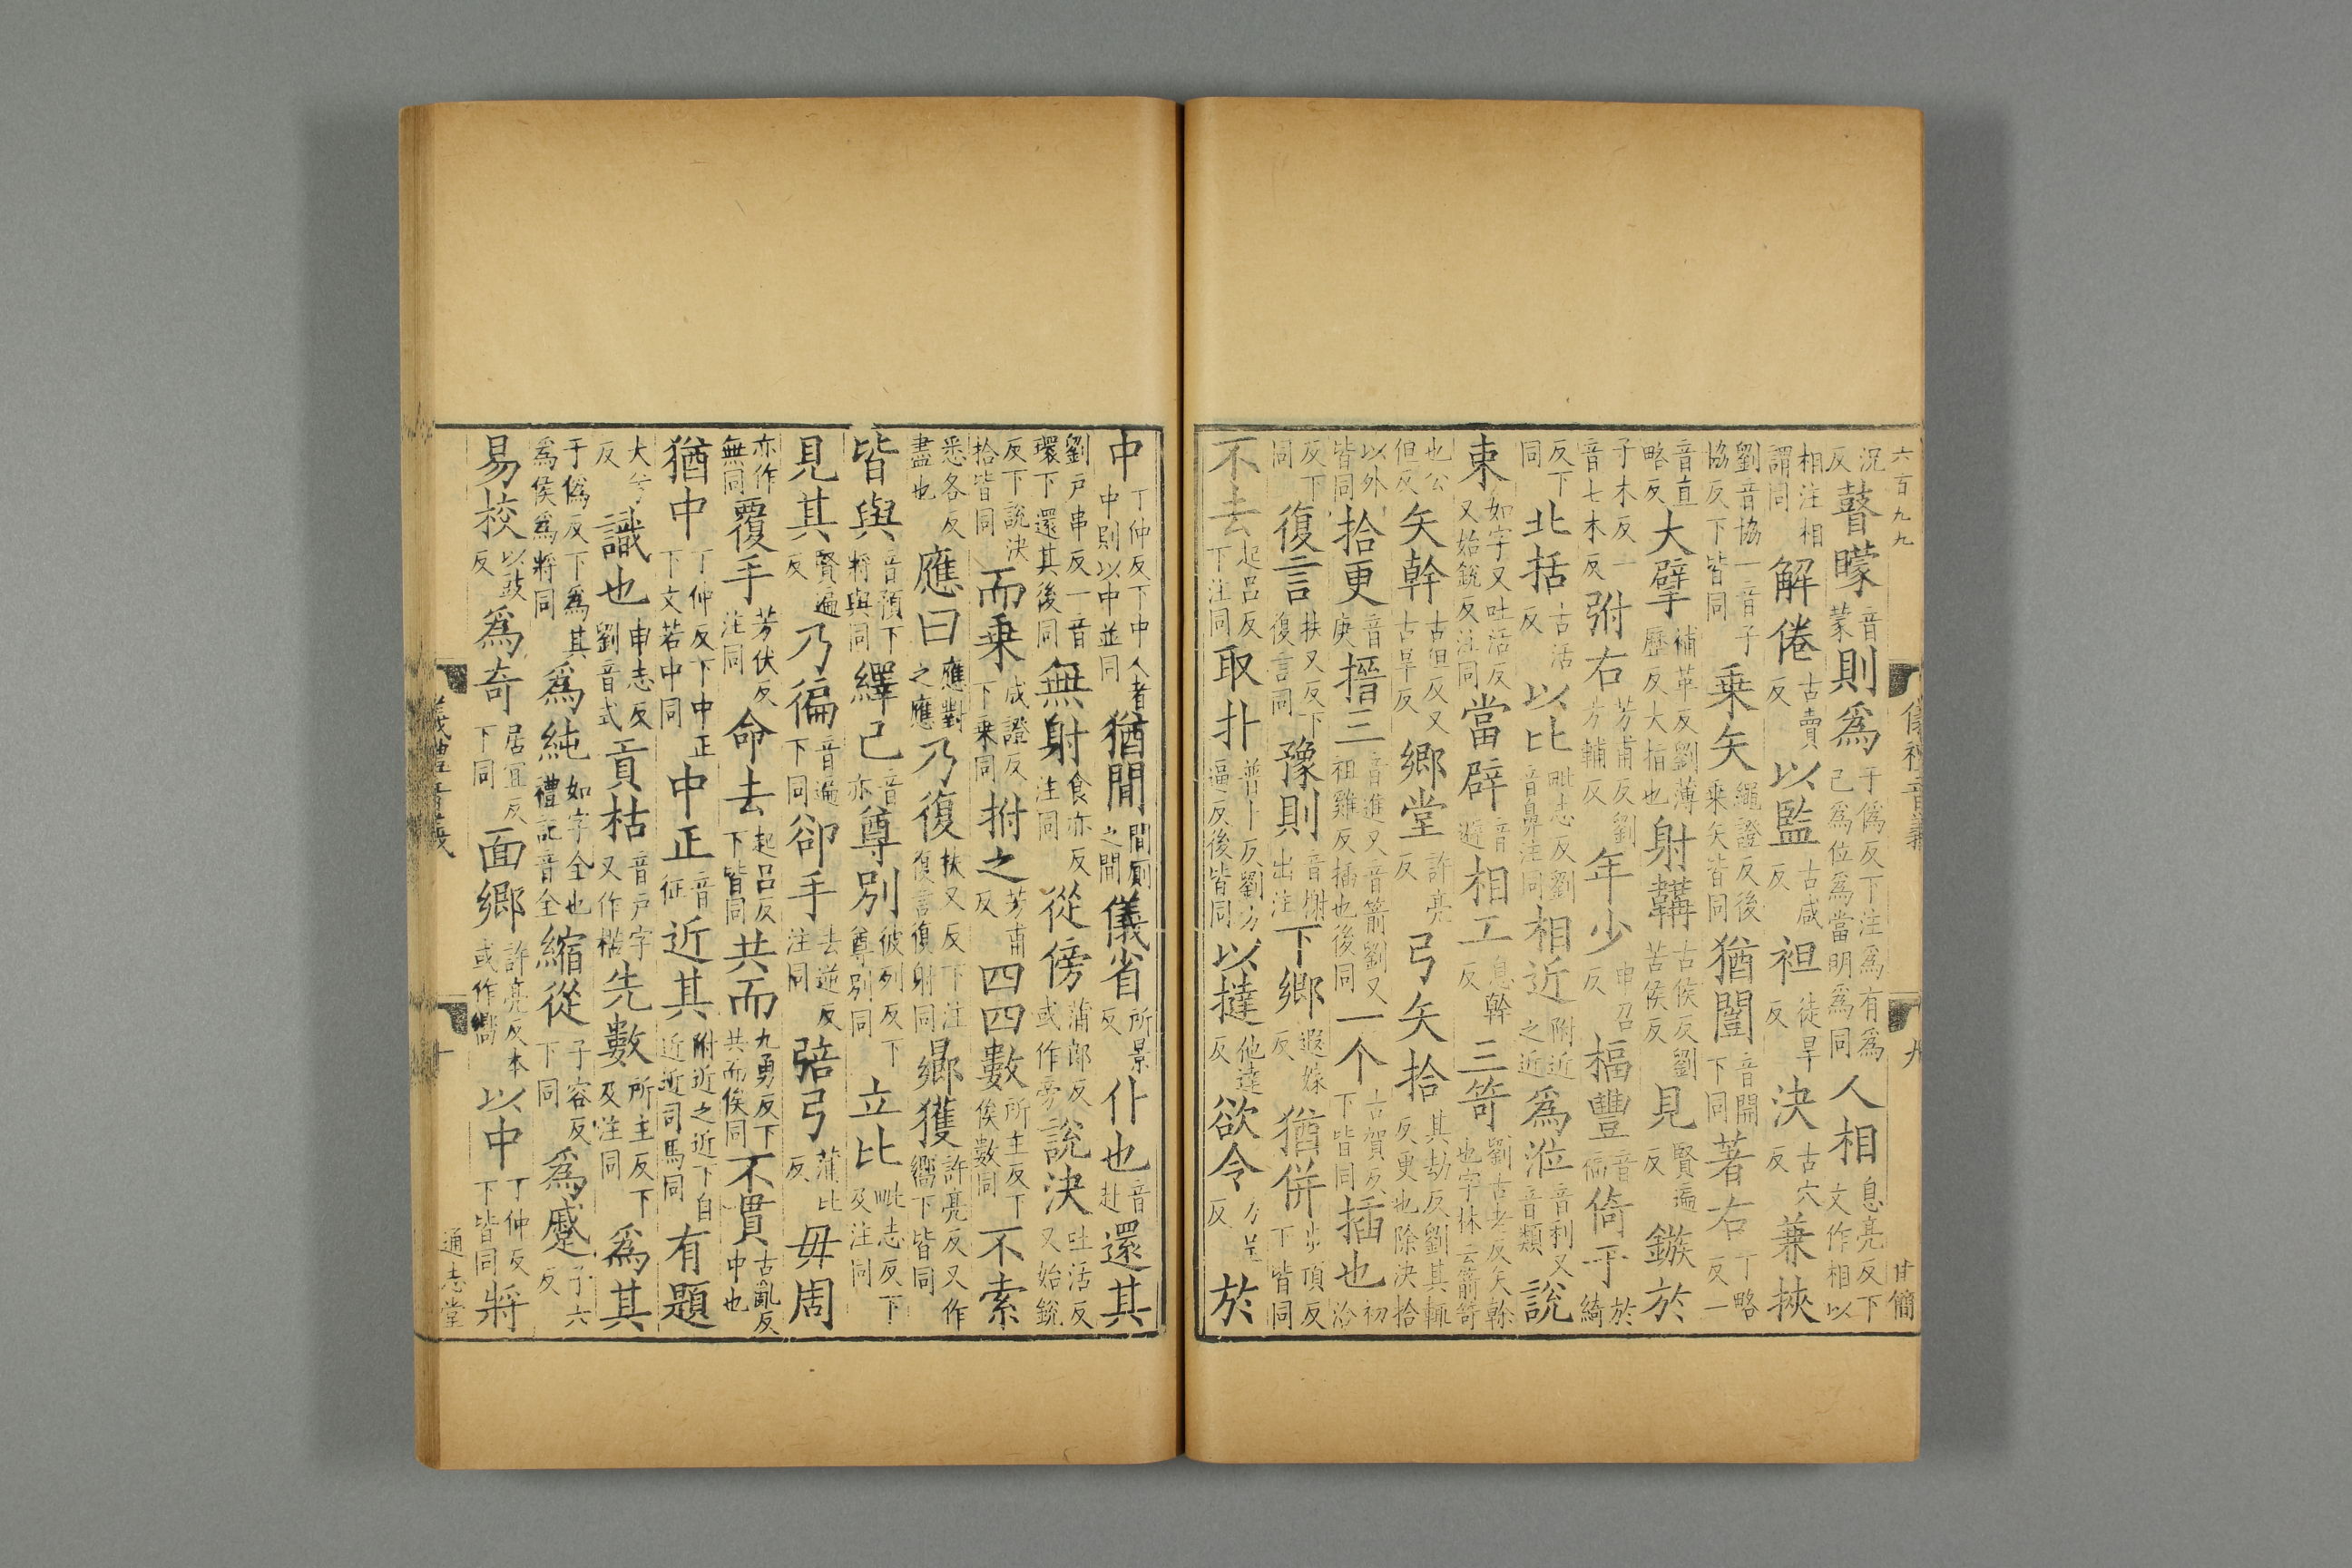 六百九九　儀禮音義　九　甘簡
沉反瞽矇音蒙則爲于僞反下注爲有爲己爲位爲當明爲同人相息亮反下文作相以
相注相謂同解倦古賣反以監古咸反袒徒旱反決古穴反兼挾
劉音協一音子協反下皆同乗矢繩證反後乗矢皆同猶闓音開下同著右丁略反一
音直略反大擘補革反劉薄歷反大指也射韝古侯反劉苦侯反見賢遍反鏃於
子木反一音七木反弣右芳甫反劉方輔反年少申召反楅豐音福倚于於綺
反下同北括古活反以比毗志反劉音鼻注同相近附近之近爲涖音利又音類說
束如字又吐活反又始銳反注同當辟音避相工息幹反三笴劉古老反矢幹也字林云箭笴
也公但反矢幹古但反又古旱反鄉堂許亮反弓矢拾其劫反劉其輒反更也除決拾
以外皆同拾更音庚搢三音進又音箭劉又祖雞反插也後同一个古賀反下皆同插也初洽
反下同復言扶又反下復言同豫則音榭出注下鄉遐嫁反猶併步頂反下皆同
不去起呂反下注同取扑普卜反劉方逼反後皆同以撻他達反欲令力呈反於
中丁仲反下中人者中則以中並同猶閒間厠之間儀省所景反仆也音赴還其
劉戶串反一音環下還其後同無射食亦反注同從傍蒲郎反或作旁說決吐活反又始銳
反下說決拾皆同而乗成證反下乗同拊之芳甫反四四數所主反下俟數同不索
悉各反盡也應曰應對之應乃復扶又反下注復言復射同鄉獲許亮反又作嚮下皆同
皆與音預下將與同繹己音亦尊別彼列反下尊別同立比毗志反下及注同
見其賢遍反乃徧音遍下同卻手去逆反注同弓蒲比反毋周
亦作無同覆手芳伏反注同命去起呂反下皆同共而九勇反下共而俟同不貫古亂反中也
猶中丁仲反下中正下文若中同中正音征近其附近之近下自近近司馬同有題
大兮反識也申志反劉音式貢枯音戶字又作楛先數所主反下及注同爲其
于僞反下爲其爲侯爲將同爲純如字全也禮記音全縮從子容反下同爲蹙子六反
易校以豉反爲奇居宜反下同面鄉許亮反本或作嚮以中丁仲反下皆同將
儀禮音義　十　通志堂